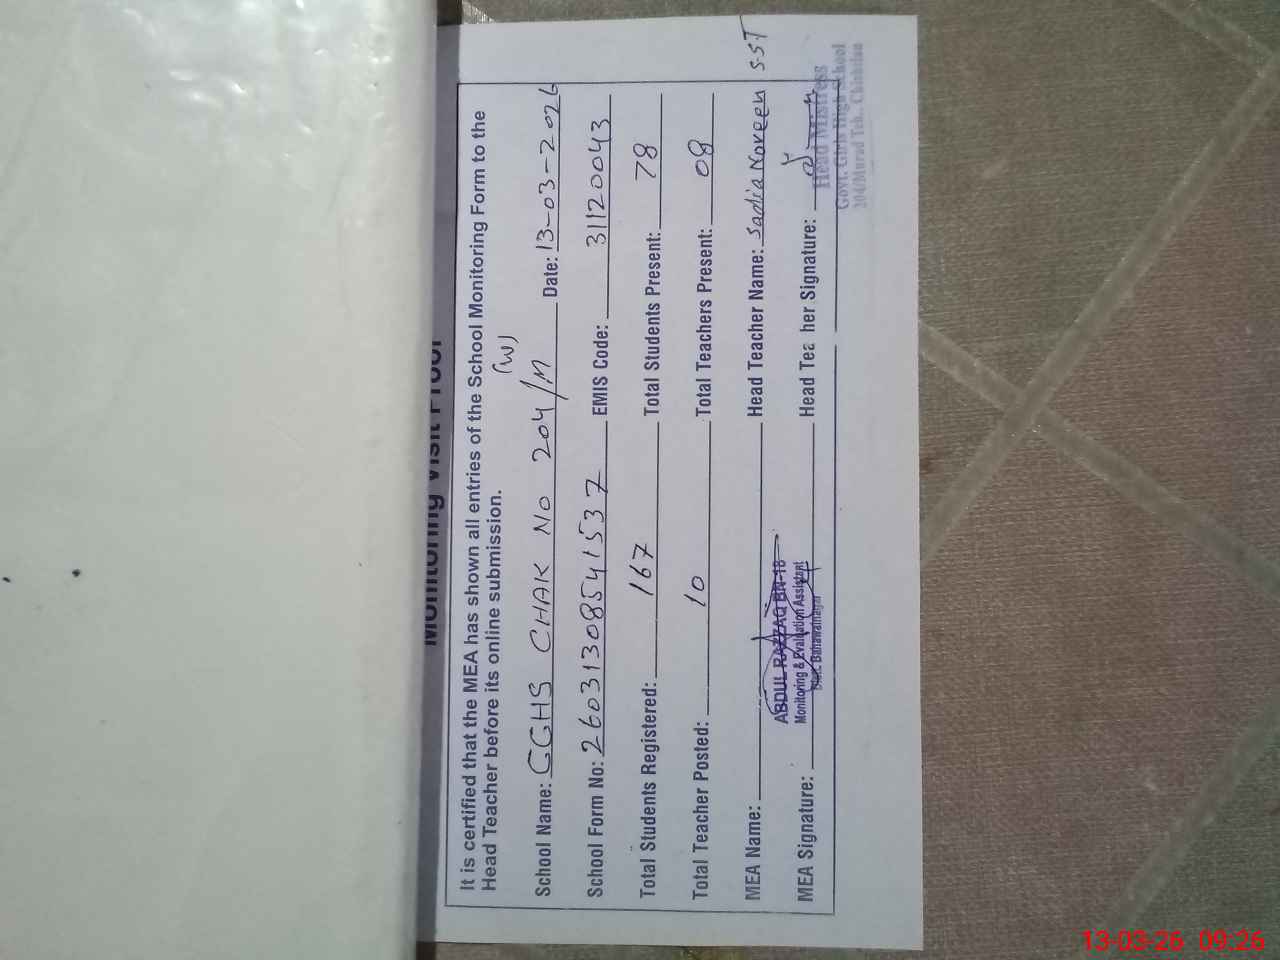 Monitoring Visit Proof
It is certified that the MEA has shown all entries of the School Monitoring Form to the
Head Teacher before its online submission.
(W)
School Name: GGHS CHAK NO 204/M Date: 13-03-2026
School Form No: 26031308541537 EMIS Code: 31120043
Total Students Registered: 167 Total Students Present: 78
Total Teacher Posted: 10 Total Teachers Present: 08
MEA Name: Head Teacher Name: Sadia Noreen S.S.T
ABDUL RAZZAQ BN-18
Monitoring & Evaluation Assistant
Distt. Bahawalnagar
MEA Signature: Head Tea her Signature:
Head Mistress
Govt. Girls High School
204/Murad Teh. Chishtian
13-03-26 09:26